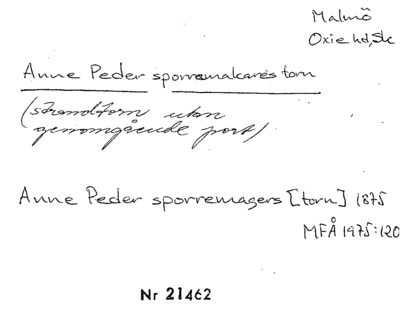 Malmö
Oxie hd, Sk
Anne Peder sporremakares torn
(strandtorn utan
genomgående port)
Anne Peder sporremagers [torn] 1875
MFÅ 1975:120
Nr 21462